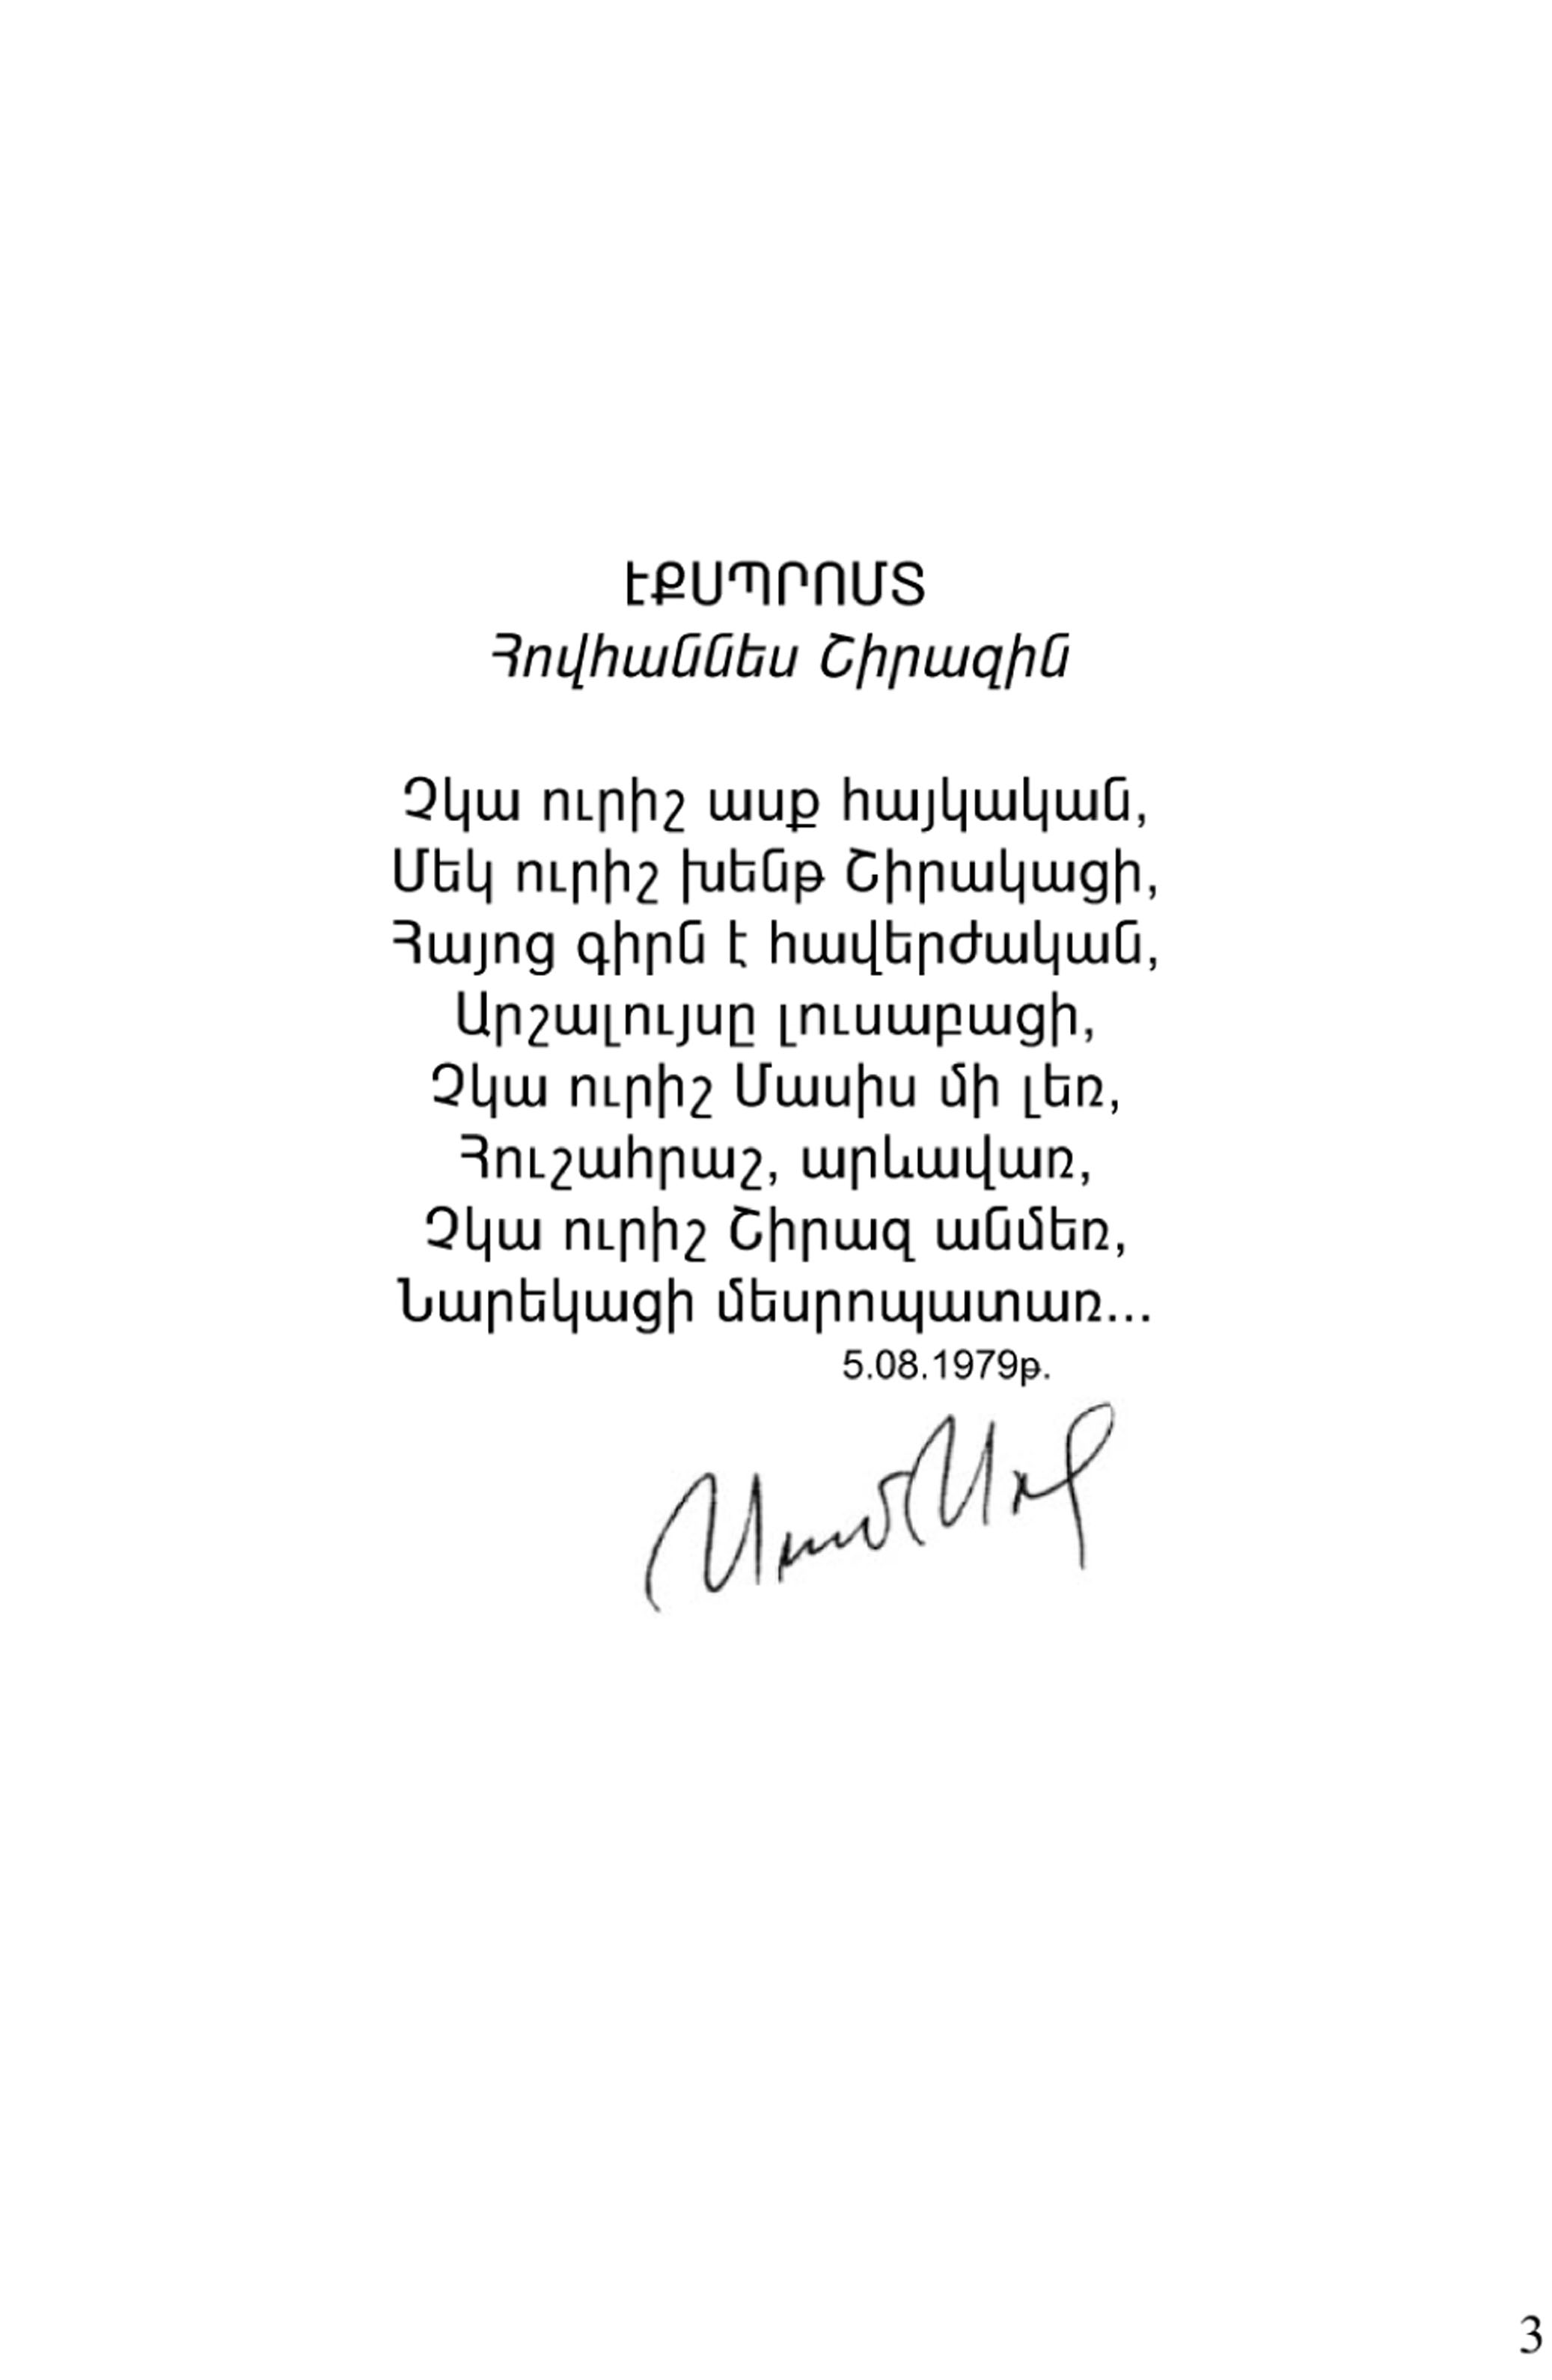 ԷՔՍՊՐՈՄՏ
Հովհաննես Շիրազին
Չկա ուրիշ ասք հայկական,
Մեկ ուրիշ խենթ Շիրակացի,
Հայոց գիրն է հավերժական,
Արշալույսը լուսաբացի,
Չկա ուրիշ Մասիս մի լեռ,
Հուշահրաշ, արևավառ,
Չկա ուրիշ Շիրազ անմեռ,
Նարեկացի մեսրոպատառ...
5.08.1979թ.
3